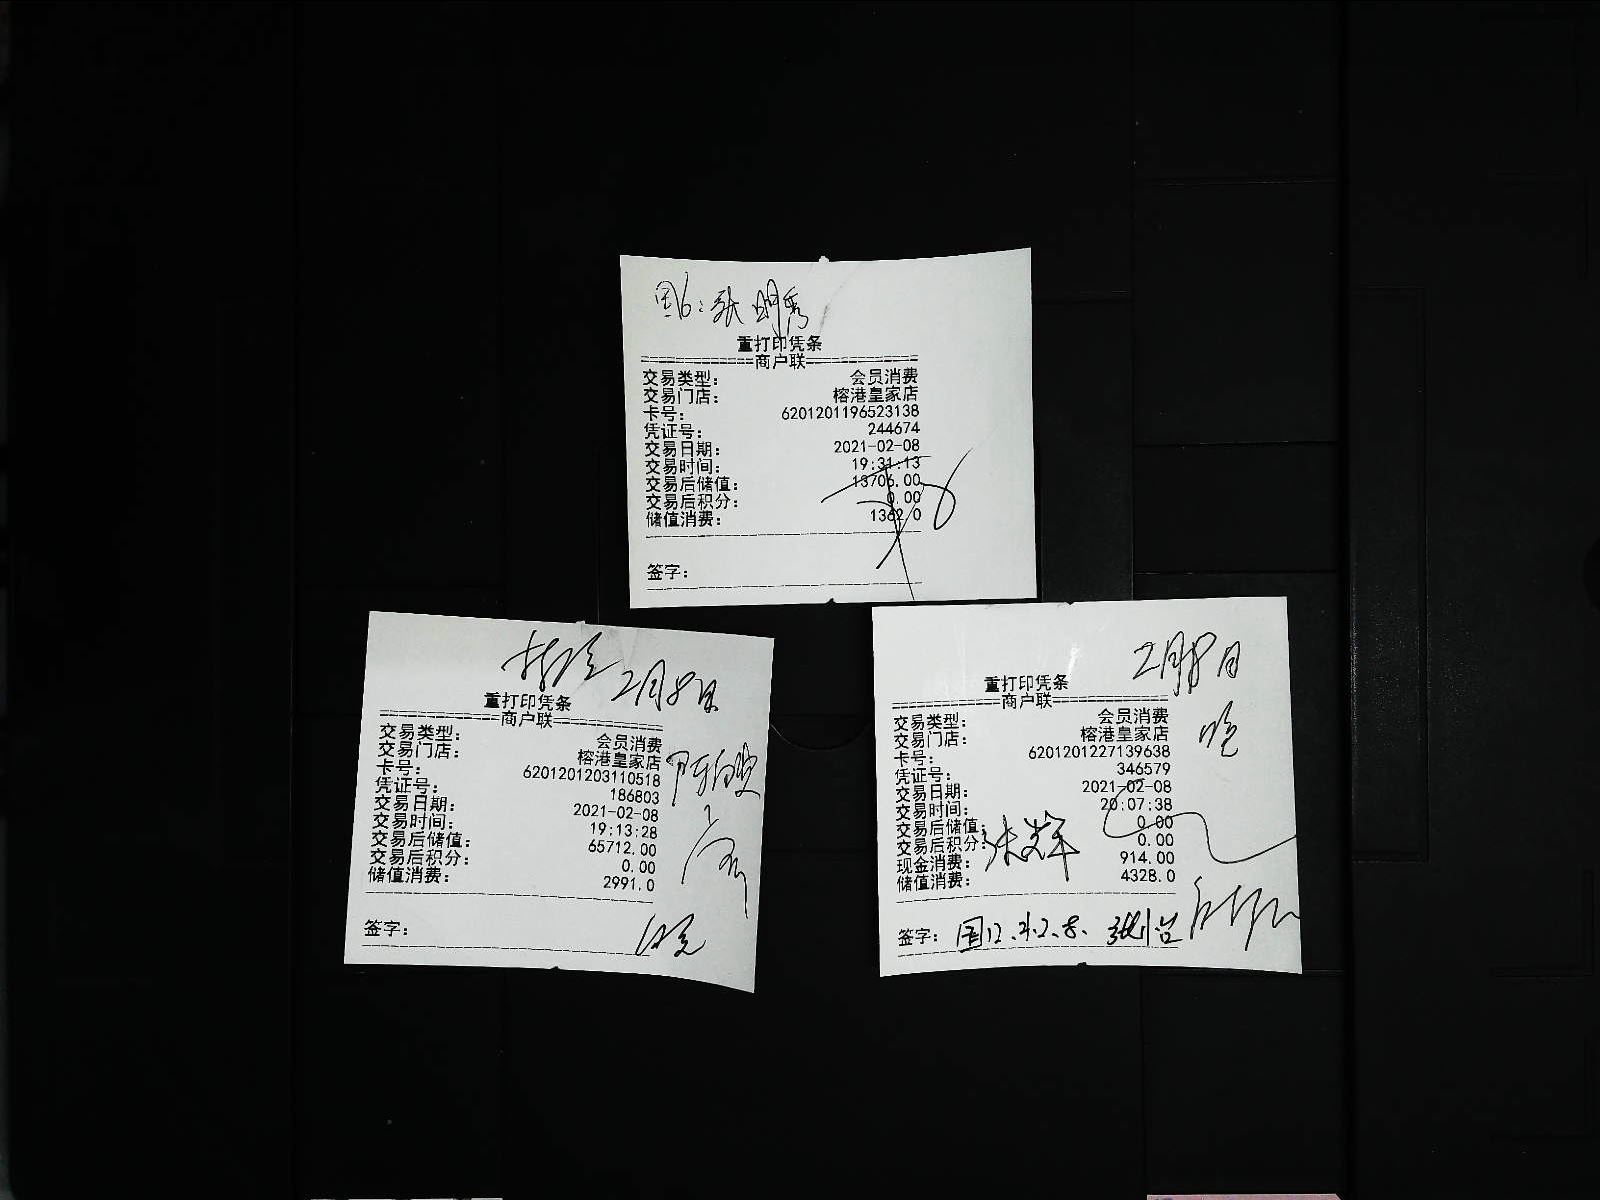 国6:张明秀
重打印凭条
=============商户联=============
交易类型: 会员消费
交易门店: 榕港皇家店
卡号: 6201201196523138
凭证号: 244674
交易日期: 2021-02-08
交易时间: 19:31:13
交易后储值: 13706.00
交易后积分: 0.00
储值消费: 1362.0
签字:
2月8日
重打印凭条
=============商户联=============
交易类型: 会员消费
交易门店: 榕港皇家店
卡号: 6201201203110518
凭证号: 186803
交易日期: 2021-02-08
交易时间: 19:13:28
交易后储值: 65712.00
交易后积分: 0.00
储值消费: 2991.0
签字:
2月8日
重打印凭条
=============商户联=============
交易类型: 会员消费
交易门店: 榕港皇家店
晚
卡号: 6201201227139638
凭证号: 346579
交易日期: 2021-02-08
交易时间: 20:07:38
交易后储值: 0.00
交易后积分: 0.00
现金消费: 914.00
储值消费: 4328.0
签字: 国12.